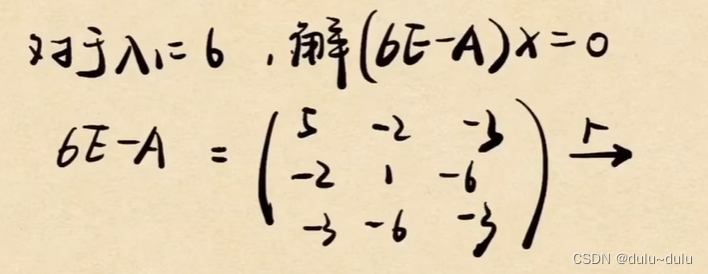 对于λ₁=6,解(6E-A)x=0
6E-A = ( 5 -2 -3
-2 1 -6
-3 -6 -3 ) r→
CSDN @dulu~dulu